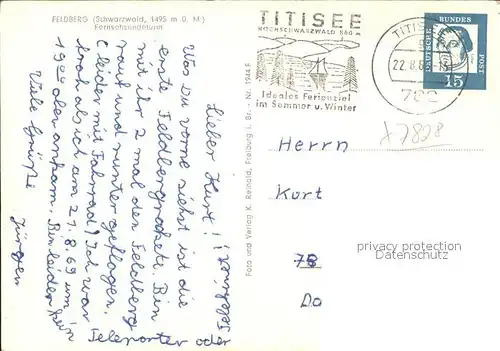 FELDBERG (Schwarzwald, 1495 m ü. M.)
Fernsehsundeturm
Lieber Kurt!
Was du vorne siehst ist die
erste Feldbergrakete. Bin
mit ihr 2 mal den Feldberg
rauf und runter geflogen.
(leider mit Fahrrad) Ich war
hoch als ich am 21.8.69 um
19 oben ankam. Bin leider kein
Teleporter oder
Viele Grüße
Jürgen
Foto und Verlag K. Reinold, Freiburg i. Br. - Nr. 1944 F
TITISEE
HOCHSCHWARZWALD 860 m
Ideales Ferienziel
im Sommer u. Winter
TITIS
22.8.6
782
DEUTSCHE
BUNDES
POST
15
x7828
Herrn
Kort
78
Do
privacy protection
Datenschutz